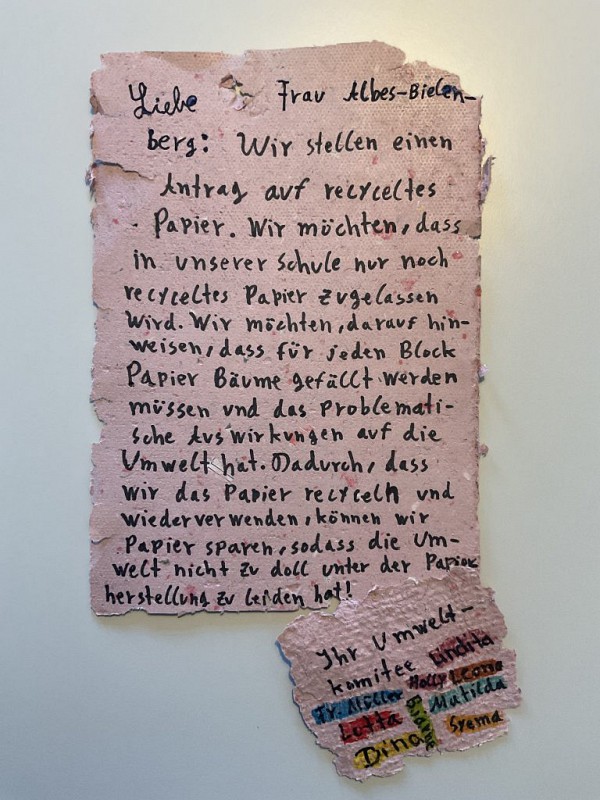 Liebe Frau Albes-Bielen-
berg: Wir stellen einen
Antrag auf recyceltes
Papier. Wir möchten, dass
in unserer Schule nur noch
recyceltes Papier zugelassen
wird. Wir möchten, darauf hin-
weisen, dass für jeden Block
Papier Bäume gefällt werden
müssen und das problemati-
sche Auswirkungen auf die
Umwelt hat. Dadurch, dass
wir das Papier recyceln und
wiederverwenden, können wir
Papier sparen, sodass die Um-
welt nicht zu doll unter der Papier
herstellung zu leiden hat!
Ihr Umwelt-
komitee Lindita
Holly Leona
Fr. Müller Matilda
Lotta Bjarne Syema
Dina